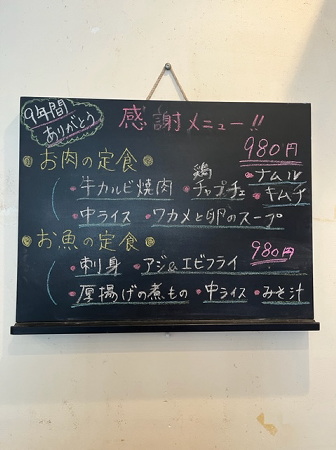 9年間
ありがとう
感謝メニュー!!
お肉の定食 980円
・牛カルビ焼肉 ・鶏チャプチェ ・ナムル ・キムチ
・中ライス ・ワカメと卵のスープ
お魚の定食 980円
・刺身 ・アジ&エビフライ
・厚揚げの煮もの ・中ライス ・みそ汁